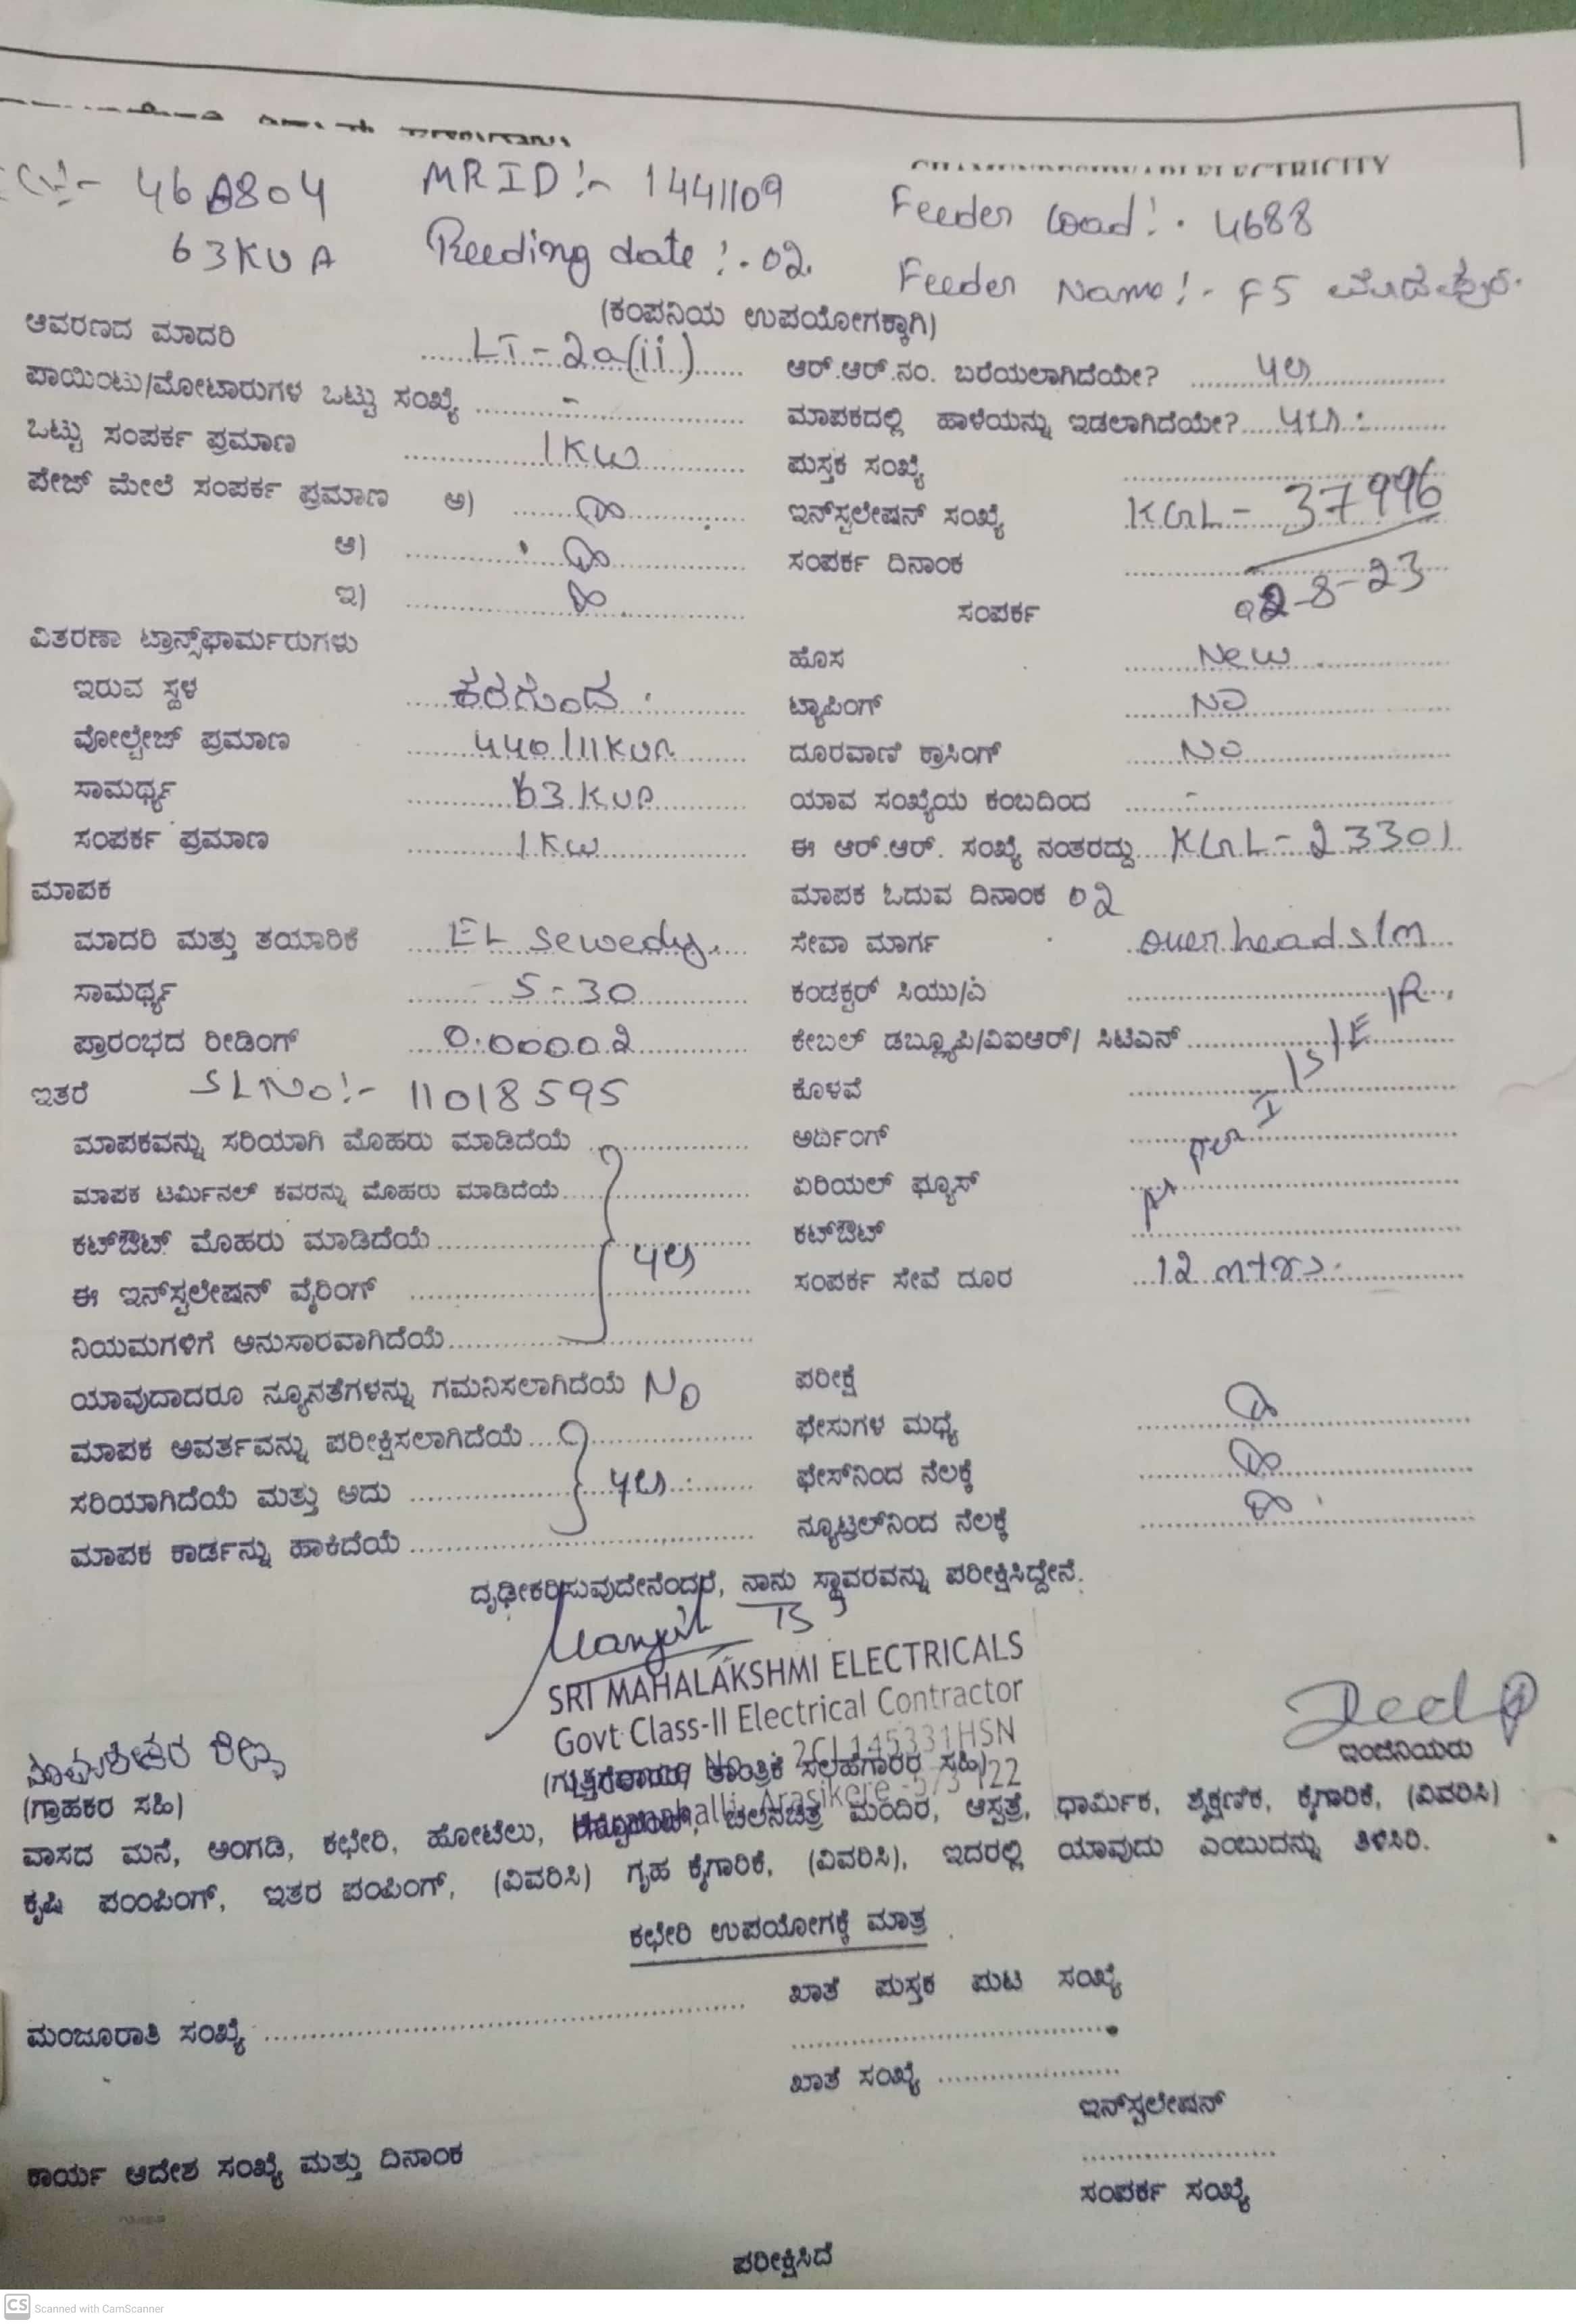 460804 MRID:- 1441109 Feeder Load:- 4688
63KVA Reeding date:-02. Feeder Name:- F5
(ಕಂಪನಿಯ ಉಪಯೋಗಕ್ಕಾಗಿ)
ಆವರಣದ ಮಾದರಿ LT-2a(ii) ಆರ್.ಆರ್.ನಂ. ಬರೆಯಲಾಗಿದೆಯೇ? yes
ಪಾಯಿಂಟು/ಮೋಟಾರುಗಳ ಒಟ್ಟು ಸಂಖ್ಯೆ - ಮಾಪಕದಲ್ಲಿ ಹಾಳೆಯನ್ನು ಇಡಲಾಗಿದೆಯೇ? yes
ಒಟ್ಟು ಸಂಪರ್ಕ ಪ್ರಮಾಣ 1KW ಪುಸ್ತಕ ಸಂಖ್ಯೆ
ಪೇಜ್ ಮೇಲೆ ಸಂಪರ್ಕ ಪ್ರಮಾಣ ಅ) ಇನ್‌ಸ್ಟಲೇಷನ್ ಸಂಖ್ಯೆ KGL-37996
ಆ) ಸಂಪರ್ಕ ದಿನಾಂಕ 02-8-23
ಇ) ಸಂಪರ್ಕ
ವಿತರಣಾ ಟ್ರಾನ್ಸ್‌ಫಾರ್ಮರುಗಳು ಹೊಸ New
ಇರುವ ಸ್ಥಳ ಕರಗುಂದ ಟ್ಯಾಪಿಂಗ್ NO
ವೋಲ್ಟೇಜ್ ಪ್ರಮಾಣ 440/11KVA ದೂರವಾಣಿ ಕ್ರಾಸಿಂಗ್ NO
ಸಾಮರ್ಥ್ಯ 63 KVA ಯಾವ ಸಂಖ್ಯೆಯ ಕಂಬದಿಂದ -
ಸಂಪರ್ಕ ಪ್ರಮಾಣ 1KW ಈ ಆರ್.ಆರ್. ಸಂಖ್ಯೆ ನಂತರದ್ದು KGL-23301
ಮಾಪಕ ಮಾಪಕ ಓದುವ ದಿನಾಂಕ 02
ಮಾದರಿ ಮತ್ತು ತಯಾರಿಕೆ EL Sewedy. ಸೇವಾ ಮಾರ್ಗ over head s/m
ಸಾಮರ್ಥ್ಯ 5-30 ಕಂಡಕ್ಟರ್ ಸಿಯು/ಎ
ಪ್ರಾರಂಭದ ರೀಡಿಂಗ್ 0.00002 ಕೇಬಲ್ ಡಬ್ಲ್ಯೂಪಿ/ವಿಐಆರ್/ ಸಿಟಿಎನ್
ಇತರೆ SLNo:- 11018595 ಕೊಳವೆ
ಮಾಪಕವನ್ನು ಸರಿಯಾಗಿ ಮೊಹರು ಮಾಡಿದೆಯೆ ಅರ್ಥಿಂಗ್
ಮಾಪಕ ಟರ್ಮಿನಲ್ ಕವರನ್ನು ಮೊಹರು ಮಾಡಿದೆಯೆ ಏರಿಯಲ್ ಫ್ಯೂಸ್
ಕಟ್‌ಔಟ್ ಮೊಹರು ಮಾಡಿದೆಯೆ yes ಕಟ್‌ಔಟ್
ಈ ಇನ್‌ಸ್ಟಲೇಷನ್ ವೈರಿಂಗ್ ಸಂಪರ್ಕ ಸೇವೆ ದೂರ 12 mtrs.
ನಿಯಮಗಳಿಗೆ ಅನುಸಾರವಾಗಿದೆಯೆ
ಯಾವುದಾದರೂ ನ್ಯೂನತೆಗಳನ್ನು ಗಮನಿಸಲಾಗಿದೆಯೆ No ಪರೀಕ್ಷೆ
ಮಾಪಕ ಅವರ್ತವನ್ನು ಪರೀಕ್ಷಿಸಲಾಗಿದೆಯೆ ಫೇಸುಗಳ ಮಧ್ಯೆ
ಸರಿಯಾಗಿದೆಯೆ ಮತ್ತು ಅದು yes ಫೇಸ್‌ನಿಂದ ನೆಲಕ್ಕೆ
ಮಾಪಕ ಕಾರ್ಡನ್ನು ಹಾಕಿದೆಯೆ ನ್ಯೂಟ್ರಲ್‌ನಿಂದ ನೆಲಕ್ಕೆ
ದೃಢೀಕರಿಸುವುದೇನೆಂದರೆ, ನಾನು ಸ್ಥಾವರವನ್ನು ಪರೀಕ್ಷಿಸಿದ್ದೇನೆ.
SRI MAHALAKSHMI ELECTRICALS
Govt Class-II Electrical Contractor
2CL145331HSN
ಇಂಜಿನಿಯರು
(ಗ್ರಾಹಕರ ಸಹಿ) (ಗುತ್ತಿಗೆದಾರರ/ ತಾಂತ್ರಿಕ ಸಲಹೆಗಾರರ ಸಹಿ)
Arasikere-573 122
ವಾಸದ ಮನೆ, ಅಂಗಡಿ, ಕಛೇರಿ, ಹೋಟೆಲು, ಚಲನಚಿತ್ರ ಮಂದಿರ, ಆಸ್ಪತ್ರೆ, ಧಾರ್ಮಿಕ, ಶೈಕ್ಷಣಿಕ, ಕೈಗಾರಿಕೆ, (ವಿವರಿಸಿ)
ಕೃಷಿ ಪಂಂಪಿಂಗ್, ಇತರ ಪಂಪಿಂಗ್, (ವಿವರಿಸಿ) ಗೃಹ ಕೈಗಾರಿಕೆ, (ವಿವರಿಸಿ), ಇದರಲ್ಲಿ ಯಾವುದು ಎಂಬುದನ್ನು ತಿಳಿಸಿರಿ.
ಕಛೇರಿ ಉಪಯೋಗಕ್ಕೆ ಮಾತ್ರ
ಮಂಜೂರಾತಿ ಸಂಖ್ಯೆ ಖಾತೆ ಪುಸ್ತಕ ಪುಟ ಸಂಖ್ಯೆ
ಖಾತೆ ಸಂಖ್ಯೆ
ಇನ್‌ಸ್ಟಲೇಷನ್
ಕಾರ್ಯ ಆದೇಶ ಸಂಖ್ಯೆ ಮತ್ತು ದಿನಾಂಕ
ಸಂಪರ್ಕ ಸಂಖ್ಯೆ
ಪರೀಕ್ಷಿಸಿದೆ
CS Scanned with CamScanner